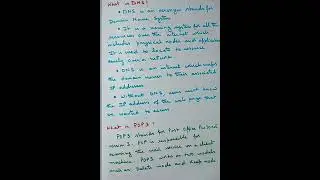 What is DNS?
• DNS is an acronym stands for
Domain Name System
• It is a naming system for all the
resources over the internet which
includes physical nodes and applications
It is used to locate to resource
easily over a network.
• DNS is an internet which maps
the domain names to their associated
IP addresses
• Without DNS, users must know
the IP address of the web page that
you wanted to access.
What is POP3?
POP3 stands for Post Office Protocol
version 3. POP is responsible for
accessing the mail service on a client
machine. POP3 works on two models
such as Delete mode and Keep mode